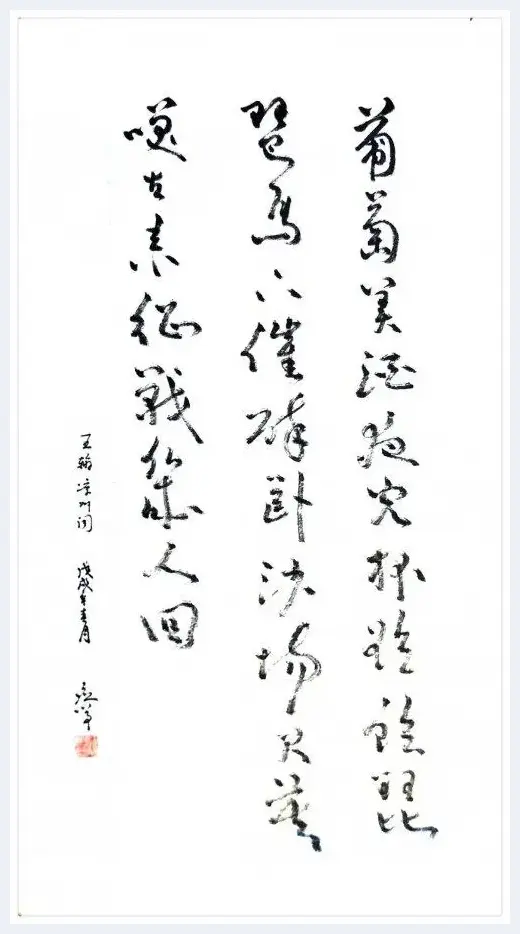 葡萄美酒夜光杯欲飲琵
琶馬上催醉卧沙場君莫
咲古来征戰幾人回
王翰凉州词 戊戌年春月